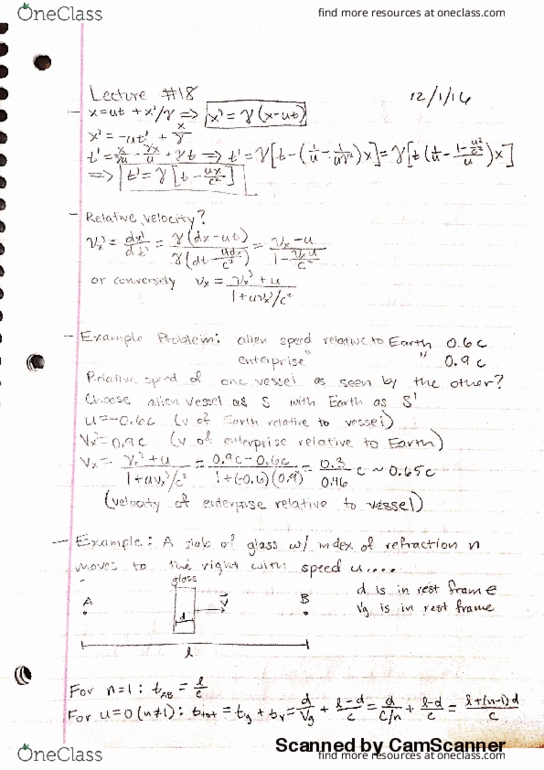 OneClass
find more resources at oneclass.com
Lecture #18
12/1/16
- x=ut + x'/γ ⇒ x' = γ(x-ut)
x' = -ut' + x/γ
t' = x/γu - γx/u + γt ⇒ t' = γ[t-(1/u - 1/uγ²)x] = γ[t(1/u - (1-u²/c²)/u)x]
⇒ t' = γ[t - ux/c²]
- Relative velocity?
Vx' = dx'/dt' = γ(dx-ut)/γ(dt-udx/c²) = (Vx-u)/(1-Vxu/c²)
or conversely Vx = (Vx'+u)/(1+uVx'/c²)
- Example Problem: alien speed relative to Earth 0.6c
enterprise " " 0.9c
Relative speed of one vessel as seen by the other?
Choose alien vessel as S with Earth as S'
u=-0.6c (v of Earth relative to vessel)
Vx'=0.9c (v of enterprise relative to Earth)
Vx = (Vx'+u)/(1+uVx'/c²) = (0.9c-0.6c)/(1+(-0.6)(0.9)) = 0.3/0.46 c ~ 0.65c
(velocity of enterprise relative to vessel)
- Example: A slab of glass w/ index of refraction n
moves to the right with speed u....
glass
d is in rest frame
A
d
v
B
Vg is in rest frame
l
For n=1: tAB = l/c
For u=0 (n≠1): ttot = tg + tv = d/Vg + (l-d)/c = d/(c/n) + (l-d)/c = (l+(n-1)d)/c
Scanned by CamScanner
OneClass
find more resources at oneclass.com